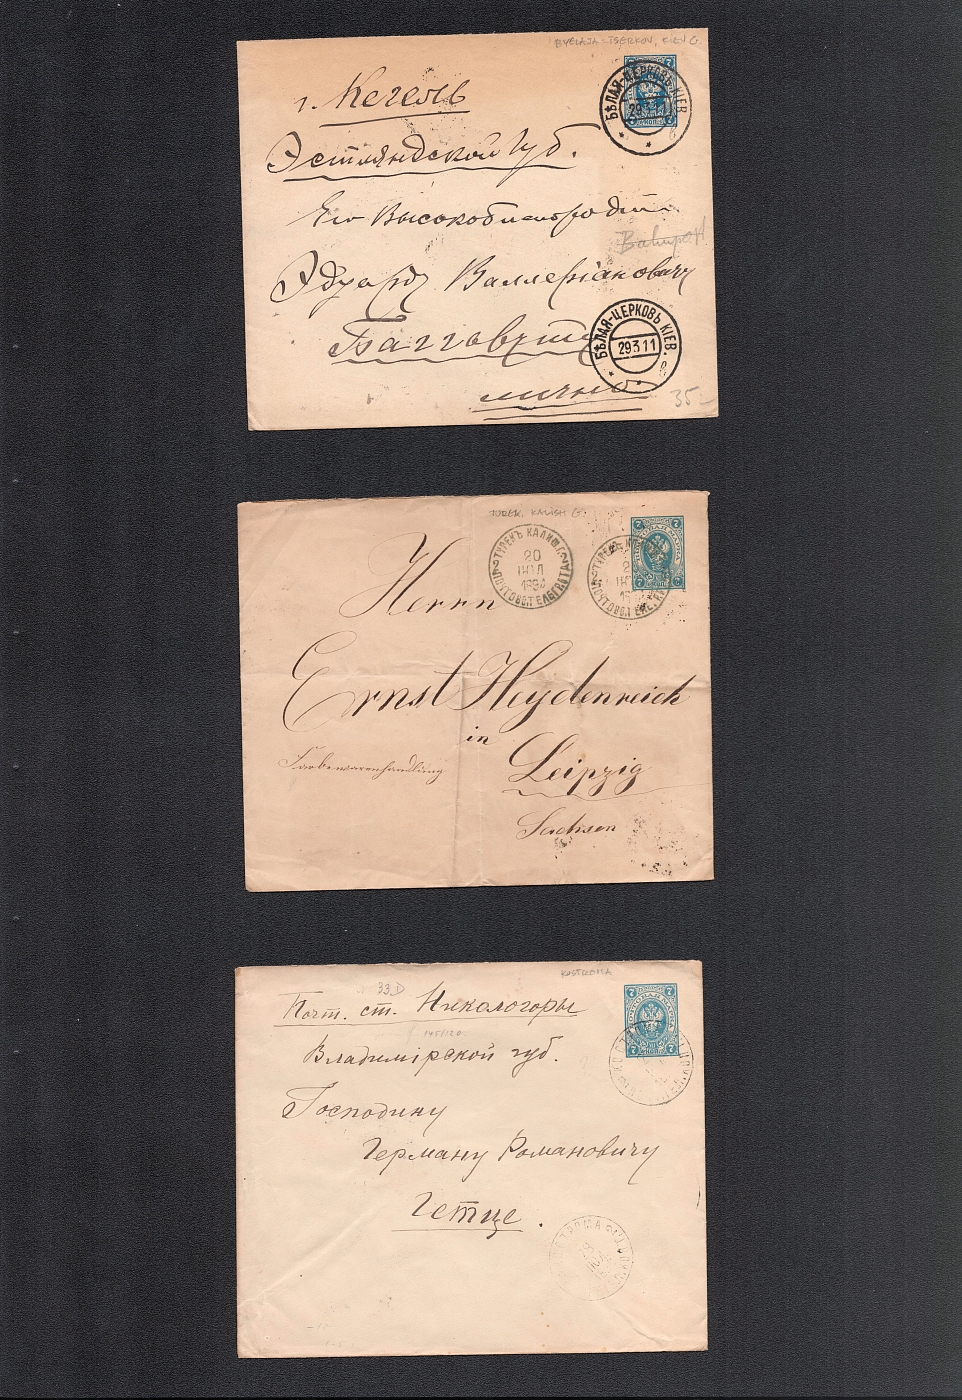 BYELAJA-TSERKOV, KIEV G.
БѢЛАЯ-ЦЕРКОВЬ КІЕВ.
29 3 11
г. Кегель
Эстляндской губ.
Его Высокоблагородию
Эдуарду Валлеріановичу
Баггавуту
лично
БѢЛАЯ-ЦЕРКОВЬ КІЕВ.
29 3 11
35-
TUREK, KALISH G.
ТУРЕКЪ КАЛИШ. Г.
20
ІЮЛ
1894
7 7
Herrn
Ernst Heydenreich
in
Leipzig
Farbewarenhandlung
Sachsen
KOSTROMA
33 D
145/120
7 7
Почт. ст. Никологоры
Владимірской губ.
Господину
Герману Романовичу
Гетце.